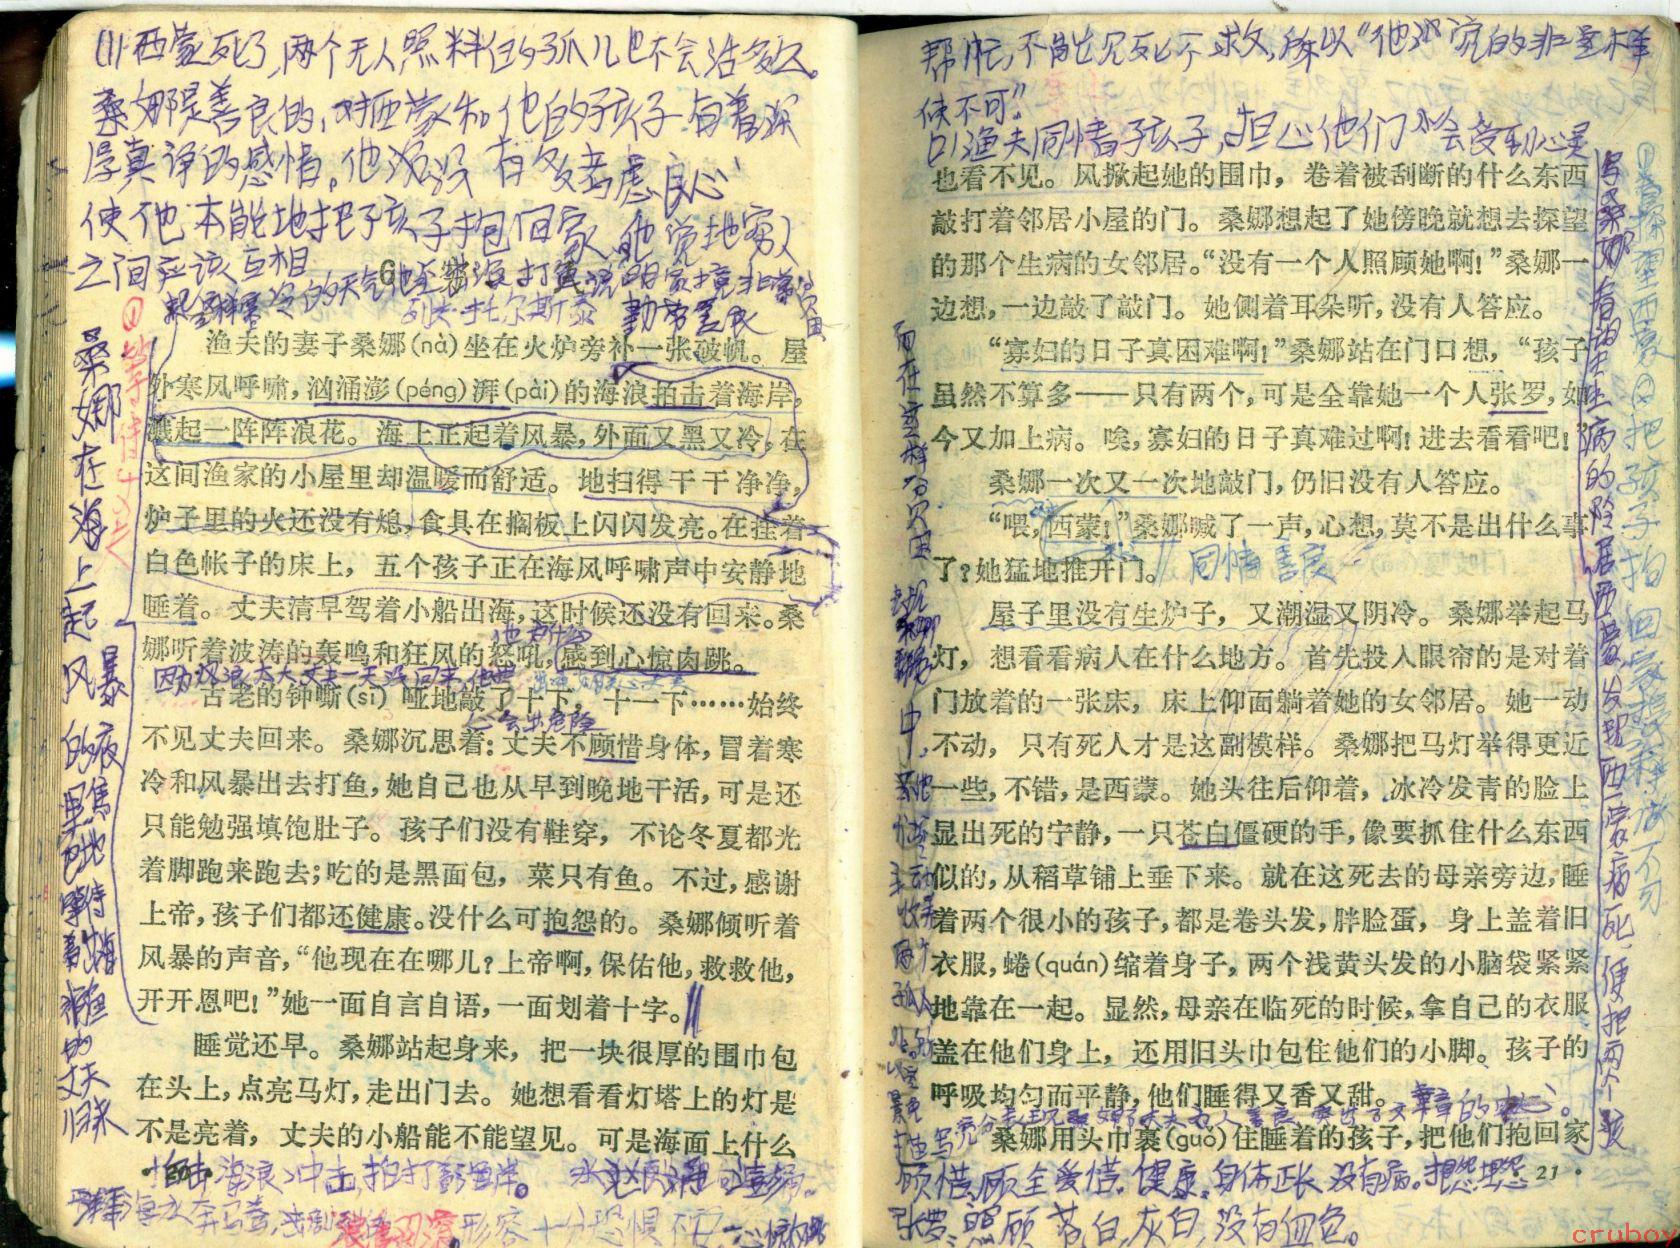 (1)西蒙死了,两个无人照料的孤儿也不会活多久。
桑娜是善良的,对西蒙和他的孩子有着深
厚真诤的感情。他没有多考虑良心
使他本能地把孩子抱回家,他觉地穷人
之间应该互相
6
列夫·托尔斯泰
勤劳善良
渔夫的妻子桑娜(nà)坐在火炉旁补一张破帆。屋
外寒风呼啸,汹涌澎(péng)湃(pài)的海浪拍击着海岸,
溅起一阵阵浪花。海上正起着风暴,外面又黑又冷,在
这间渔家的小屋里却温暖而舒适。地扫得干干净净,
炉子里的火还没有熄,食具在搁板上闪闪发亮。在挂着
白色帐子的床上,五个孩子正在海风呼啸声中安静地
睡着。丈夫清早驾着小船出海,这时候还没有回来。桑
娜听着波涛的轰鸣和狂风的怒吼,感到心惊肉跳。
古老的钟嘶(sī)哑地敲了十下,十一下……始终
会出危险
不见丈夫回来。桑娜沉思着:丈夫不顾惜身体,冒着寒
冷和风暴出去打鱼,她自己也从早到晚地干活,可是还
只能勉强填饱肚子。孩子们没有鞋穿,不论冬夏都光
着脚跑来跑去;吃的是黑面包,菜只有鱼。不过,感谢
上帝,孩子们都还健康。没什么可抱怨的。桑娜倾听着
风暴的声音,“他现在在哪儿?上帝啊,保佑他,救救他,
开开恩吧!”她一面自言自语,一面划着十字。
睡觉还早。桑娜站起身来,把一块很厚的围巾包
在头上,点亮马灯,走出门去。她想看看灯塔上的灯是
不是亮着,丈夫的小船能不能望见。可是海面上什么
拍击 海浪冲击,拍打
形容十分恐惧不安
桑娜在海上起风暴的夜里焦
丈夫归来
帮忙,不能见死不救,所以“他觉的非这样
做不可”
口渔夫同情孩子,担心他们 会受到心灵
也看不见。风掀起她的围巾,卷着被刮断的什么东西
敲打着邻居小屋的门。桑娜想起了她傍晚就想去探望
的那个生病的女邻居。“没有一个人照顾她啊!”桑娜一
边想,一边敲了敲门。她侧着耳朵听,没有人答应。
“寡妇的日子真困难啊!”桑娜站在门口想,“孩子
虽然不算多——只有两个,可是全靠她一个人张罗,如
今又加上病。唉,寡妇的日子真难过啊!进去看看吧!”
桑娜一次又一次地敲门,仍旧没有人答应。
“喂,西蒙!”桑娜喊了一声,心想,莫不是出什么事
了?她猛地推开门。
同情 善良
屋子里没有生炉子,又潮湿又阴冷。桑娜举起马
灯,想看看病人在什么地方。首先投入眼帘的是对着
门放着的一张床,床上仰面躺着她的女邻居。她一动
不动,只有死人才是这副模样。桑娜把马灯举得更近
一些,不错,是西蒙。她头往后仰着,冰冷发青的脸上
显出死的宁静,一只苍白僵硬的手,像要抓住什么东西
似的,从稻草铺上垂下来。就在这死去的母亲旁边,睡
着两个很小的孩子,都是卷头发,胖脸蛋,身上盖着旧
衣服,蜷(quán)缩着身子,两个浅黄头发的小脑袋紧紧
地靠在一起。显然,母亲在临死的时候,拿自己的衣服
盖在他们身上,还用旧头巾包住他们的小脚。孩子的
呼吸均匀而平静,他们睡得又香又甜。
桑娜用头巾裹(guǒ)住睡着的孩子,把他们抱回家
顾惜,顾全爱惜。健康。身体正长没有病。
21
张罗,照顾 苍白,灰白,没有血色。
写桑娜看望生病的邻居西蒙发现西蒙病死,便把两个孩
cruboy